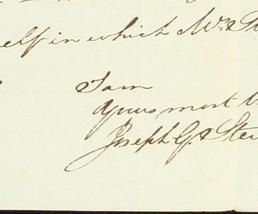 elf in which Mr. St
I am
yours most
Joseph G. Ste